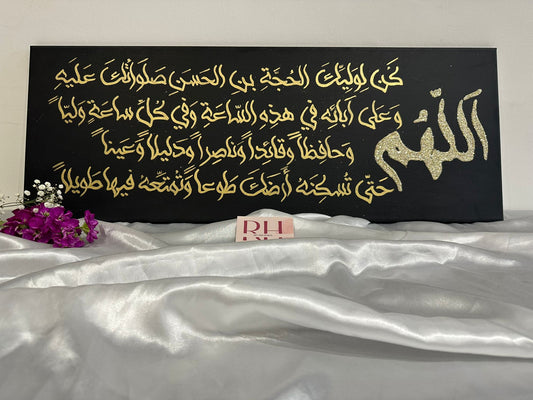 اللّهُم
كُن لوليِّكَ الحُجَّة بن الحَسَن صَلَواتُكَ عَلَيهِ
وَعَلى آبائِه في هذهِ السّاعَة وَفي كُلِّ ساعَة وَليّاً
وَحافظاً وَقائِداً وَناصِراً وَدليلاً وَعَيناً
حَتّى تُسكِنَهُ أرضَكَ طَوعاً وَتُمَتِّعَه فيها طَويلاً
RH